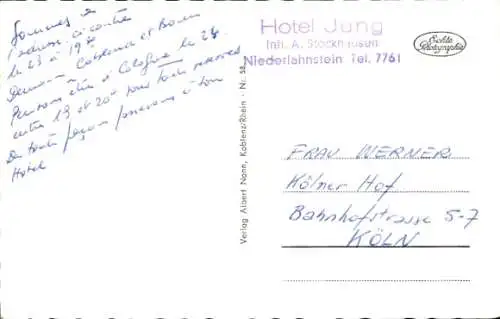 Sommes à
l'adresse ci contre
le 23 à 19h
Demain Coblence et Bonn
Pensons être à Cologne le 24
entre 19 et 20h pour toute reserves
De toute façon passerons à ton
Hotel
Hotel Jung
Inh. A. Stockhausen
Niederlahnstein Tel. 7761
Echte Photographie
Verlag Albert Nann, Koblenz/Rhein - Nr. 58
FRAU WERNER
Kölner Hof
Bahnhofstrasse 5-7
KÖLN